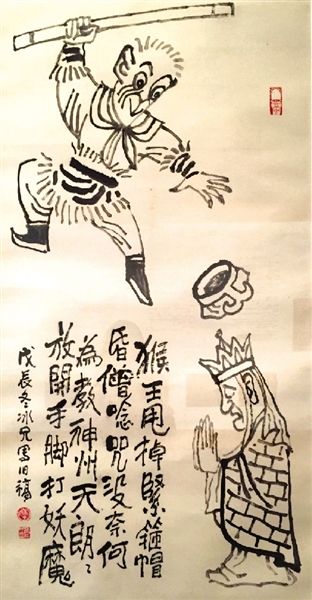 猴王甩掉緊箍帽
昏僧唸咒没奈何
為教神州天朗〻
放開手脚打妖魔
戊辰冬冰兄寫旧稿